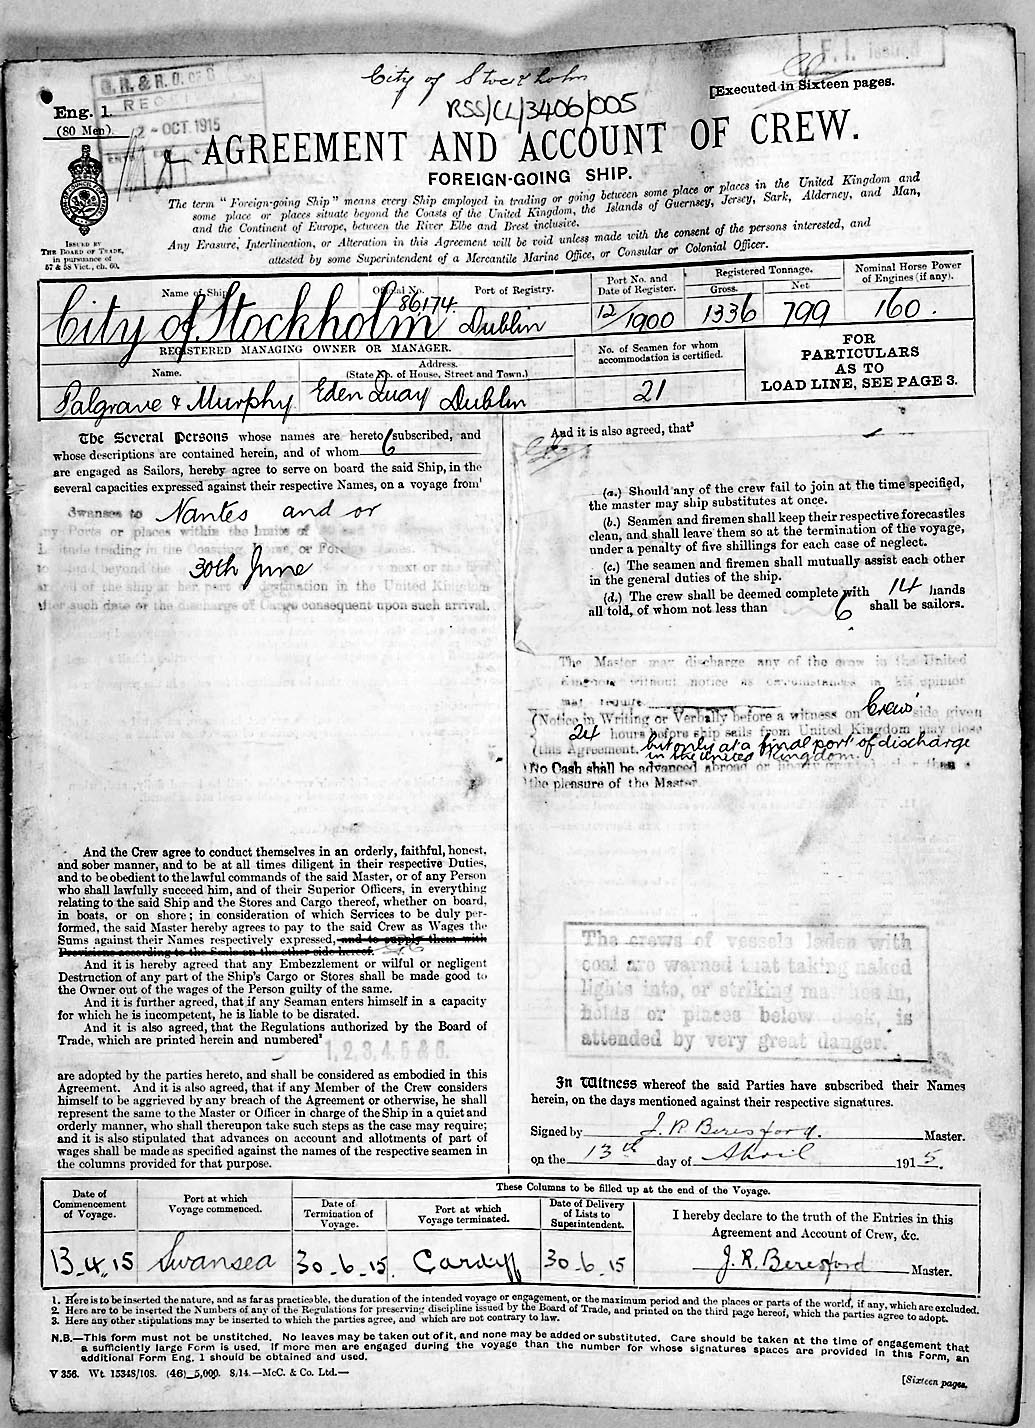 City of Stockholm
RSS/CL/3406/005
F. I. issued
[Executed in Sixteen pages.
Eng. 1.
(80 Men)
2 - OCT 1915
AGREEMENT AND ACCOUNT OF CREW.
FOREIGN-GOING SHIP.
The term "Foreign-going Ship" means every Ship employed in trading or going between some place or places in the United Kingdom and
some place or places situate beyond the Coasts of the United Kingdom, the Islands of Guernsey, Jersey, Sark, Alderney, and Man,
and the Continent of Europe, between the River Elbe and Brest inclusive.
Any Erasure, Interlineation, or Alteration in this Agreement will be void unless made with the consent of the persons interested, and
attested by some Superintendent of a Mercantile Marine Office, or Consular or Colonial Officer.
ISSUED BY
THE BOARD OF TRADE,
in pursuance of
57 & 58 Vict., ch. 60.
Name of Ship
Official No.
Port of Registry.
Port No. and
Date of Register.
Registered Tonnage.
Gross.
Net
Nominal Horse Power
of Engines (if any).
City of Stockholm
86174
Dublin
12/1900
1336
799
160.
REGISTERED MANAGING OWNER OR MANAGER.
Name.
Address.
(State No. of House, Street and Town.)
No. of Seamen for whom
accommodation is certified.
FOR
PARTICULARS
AS TO
LOAD LINE, SEE PAGE 3.
Palgrave & Murphy
Eden Quay Dublin
21
The Several Persons whose names are hereto subscribed, and
whose descriptions are contained herein, and of whom 6
are engaged as Sailors, hereby agree to serve on board the said Ship, in the
several capacities expressed against their respective Names, on a voyage from¹
Swansea to Nantes and or
Ports or places within the limits of
trading in the
to beyond the 30th June next or the
of the ship at her port destination in the United Kingdom
after such date or the discharge of Cargo consequent upon such arrival.
And the Crew agree to conduct themselves in an orderly, faithful, honest,
and sober manner, and to be at all times diligent in their respective Duties,
and to be obedient to the lawful commands of the said Master, or of any Person
who shall lawfully succeed him, and of their Superior Officers, in everything
relating to the said Ship and the Stores and Cargo thereof, whether on board,
in boats, or on shore; in consideration of which Services to be duly per-
formed, the said Master hereby agrees to pay to the said Crew as Wages the
Sums against their Names respectively expressed, and to supply them with
Provisions according to the Scale on the other side hereof.
And it is hereby agreed that any Embezzlement or wilful or negligent
Destruction of any part of the Ship's Cargo or Stores shall be made good to
the Owner out of the wages of the Person guilty of the same.
And it is further agreed, that if any Seaman enters himself in a capacity
for which he is incompetent, he is liable to be disrated.
And it is also agreed, that the Regulations authorized by the Board of
Trade, which are printed herein and numbered²
1, 2, 3, 4, 5 & 6.
are adopted by the parties hereto, and shall be considered as embodied in this
Agreement. And it is also agreed, that if any Member of the Crew considers
himself to be aggrieved by any breach of the Agreement or otherwise, he shall
represent the same to the Master or Officer in charge of the Ship in a quiet and
orderly manner, who shall thereupon take such steps as the case may require;
and it is also stipulated that advances on account and allotments of part of
wages shall be made as specified against the names of the respective seamen in
the columns provided for that purpose.
And it is also agreed, that³
(a.) Should any of the crew fail to join at the time specified,
the master may ship substitutes at once.
(b.) Seamen and firemen shall keep their respective forecastles
clean, and shall leave them so at the termination of the voyage,
under a penalty of five shillings for each case of neglect.
(c.) The seamen and firemen shall mutually assist each other
in the general duties of the ship.
(d.) The crew shall be deemed complete with 14 hands
all told, of whom not less than 6 shall be sailors.
The Master may discharge any of the crew in the United
Kingdom without notice as circumstances in his opinion
may require
(Notice in Writing or Verbally before a witness on Crews' side given
24 hours before ship sails from United Kingdom may close
(this Agreement. but only at a final port of discharge
in the United Kingdom.
No Cash shall be advanced abroad or than a
the pleasure of the Master
The crews of vessels laden with
coal are warned that taking naked
lights into, or striking matches in,
holds or places below deck, is
attended by very great danger.
In Witness whereof the said Parties have subscribed their Names
herein, on the days mentioned against their respective signatures.
Signed by J. R. Beresford. Master.
on the 13th day of April 1915.
These Columns to be filled up at the end of the Voyage.
Date of
Commencement
of Voyage.
Port at which
Voyage commenced.
Date of
Termination of
Voyage.
Port at which
Voyage terminated.
Date of Delivery
of Lists to
Superintendent.
I hereby declare to the truth of the Entries in this
Agreement and Account of Crew, &c.
13-4-15
Swansea
30-6-15
Cardiff
30-6-15
J. R. Beresford Master.
1. Here is to be inserted the nature, and as far as practicable, the duration of the intended voyage or engagement, or the maximum period and the places or parts of the world, if any, which are excluded.
2. Here are to be inserted the Numbers of any of the Regulations for preserving discipline issued by the Board of Trade, and printed on the third page hereof, which the parties agree to adopt.
3. Here any other stipulations may be inserted to which the parties agree, and which are not contrary to law.
N.B.—This form must not be unstitched. No leaves may be taken out of it, and none may be added or substituted. Care should be taken at the time of engagement that
a sufficiently large Form is used. If more men are engaged during the voyage than the number for whose signatures spaces are provided in this Form, an
additional Form Eng. 1 should be obtained and used.
V 356. Wt. 15348/108. (46) 5,000. 8/14.—McC. & Co. Ltd.—
[Sixteen pages.